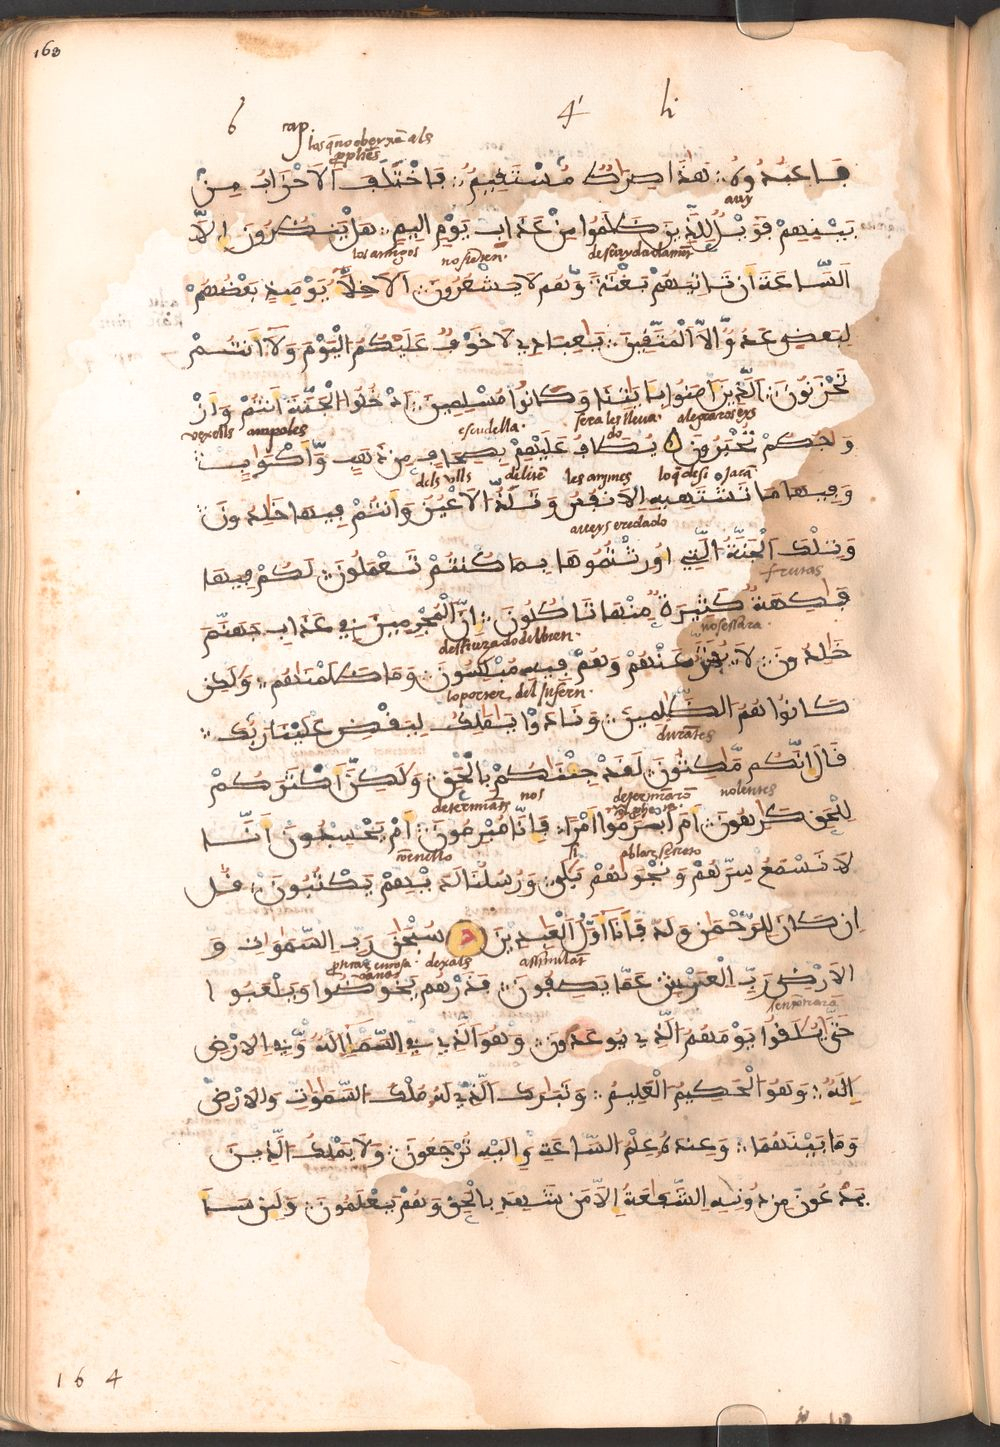 163
6 4 h
cap. los q̃ no obeyxẽ als
pphẽs
فَاعْبُدُوهُ هَٰذَا صِرَاطٌ مُّسْتَقِيمٌ فَاخْتَلَفَ الْأَحْزَابُ مِنْ
auy
بَيْنِهِمْ فَوَيْلٌ لِّلَّذِينَ ظَلَمُوا مِنْ عَذَابِ يَوْمٍ أَلِيمٍ هَلْ يَنظُرُونَ إِلَّا
los amigos no sietẽn. descuydadamẽt
السَّاعَةَ أَن تَأْتِيَهُم بَغْتَةً وَهُمْ لَا يَشْعُرُونَ الْأَخِلَّاءُ يَوْمَئِذٍ بَعْضُهُمْ
لِبَعْضٍ عَدُوٌّ إِلَّا الْمُتَّقِينَ يَٰعِبَادِي لَا خَوْفٌ عَلَيْكُمُ الْيَوْمَ وَلَا أَنتُمْ
تَحْزَنُونَ الَّذِينَ ءَامَنُوا بِـَٔايَٰتِنَا وَكَانُوا مُسْلِمِينَ ادْخُلُوا الْجَنَّةَ أَنتُمْ وَأَزْ
vexells ampoles escudella. sera les lleua do alegraros exs
وَٰجُكُمْ تُحْبَرُونَ يُطَافُ عَلَيْهِم بِصِحَافٍ مِّن ذَهَبٍ وَأَكْوَابٍ
dels ulls delitẽ les anymes lo q̃ desi ojarã
وَفِيهَا مَا تَشْتَهِيهِ الْأَنفُسُ وَتَلَذُّ الْأَعْيُنُ وَأَنتُمْ فِيهَا خَٰلِدُونَ
aueys eredado
وَتِلْكَ الْجَنَّةُ الَّتِي أُورِثْتُمُوهَا بِمَا كُنتُمْ تَعْمَلُونَ لَكُمْ فِيهَا
frutas
فَٰكِهَةٌ كَثِيرَةٌ مِّنْهَا تَأْكُلُونَ إِنَّ الْمُجْرِمِينَ فِي عَذَابِ جَهَنَّمَ
no sestara.
خَٰلِدُونَ لَا يُفَتَّرُ عَنْهُمْ وَهُمْ فِيهِ مُبْلِسُونَ وَمَا ظَلَمْنَٰهُمْ وَلَٰكِن
lo porter del Infern.
كَانُوا هُمُ الظَّٰلِمِينَ وَنَادَوْا يَٰمَٰلِكُ لِيَقْضِ عَلَيْنَا رَبُّكَ
durãtes
قَالَ إِنَّكُم مَّٰكِثُونَ لَقَدْ جِئْنَٰكُم بِالْحَقِّ وَلَٰكِنَّ أَكْثَرَكُمْ
determinãts nos determinarõ nolentes
لِلْحَقِّ كَٰرِهُونَ أَمْ أَبْرَمُوا أَمْرًا فَإِنَّا مُبْرِمُونَ أَمْ يَحْسِبُونَ أَنَّا
si
لَا نَسْمَعُ سِرَّهُمْ وَنَجْوَىٰهُم بَلَىٰ وَرُسُلُنَا لَدَيْهِمْ يَكْتُبُونَ قُلْ
إِن كَانَ لِلرَّحْمَٰنِ وَلَدٌ فَأَنَا أَوَّلُ الْعَٰبِدِينَ سُبْحَٰنَ رَبِّ السَّمَٰوَاتِ وَ
dexals assimilat
الْأَرْضِ رَبِّ الْعَرْشِ عَمَّا يَصِفُونَ فَذَرْهُمْ يَخُوضُوا وَيَلْعَبُوا
حَتَّىٰ يُلَٰقُوا يَوْمَهُمُ الَّذِي يُوعَدُونَ وَهُوَ الَّذِي فِي السَّمَاءِ إِلَٰهٌ وَفِي الْأَرْضِ
إِلَٰهٌ وَهُوَ الْحَكِيمُ الْعَلِيمُ وَتَبَٰرَكَ الَّذِي لَهُ مُلْكُ السَّمَٰوَٰتِ وَالْأَرْضِ
وَمَا بَيْنَهُمَا وَعِندَهُ عِلْمُ السَّاعَةِ وَإِلَيْهِ تُرْجَعُونَ وَلَا يَمْلِكُ الَّذِينَ
يَدْعُونَ مِن دُونِهِ الشَّفَٰعَةَ إِلَّا مَن شَهِدَ بِالْحَقِّ وَهُمْ يَعْلَمُونَ وَلَئِن سَأَ
1 6 4